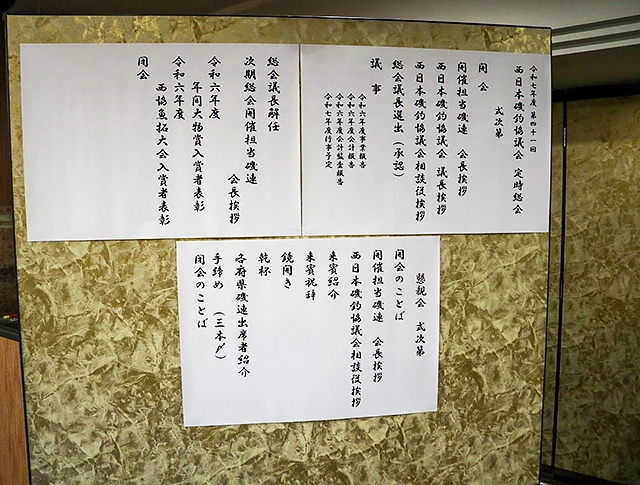 令和七年度 第四十一回
西日本磯釣協議会 定時総会
式次第
開会
開催担当磯連 会長挨拶
西日本磯釣協議会 議長挨拶
西日本磯釣協議会相談役挨拶
総会議長選出(承認)
議事
令和六年度事業報告
令和六年度会計報告
令和六年度会計監査報告
令和七年度行事予定
総会議長解任
次期総会開催担当磯連
会長挨拶
令和六年度
年間大物賞入賞者表彰
令和六年度
西協魚拓大会入賞者表彰
閉会
懇親会 式次第
開会のことば
開催担当磯連 会長挨拶
西日本磯釣協議会相談役挨拶
来賓紹介
来賓祝辞
鏡開き
乾杯
各府県磯連出席者紹介
手締め (三本〆)
閉会のことば